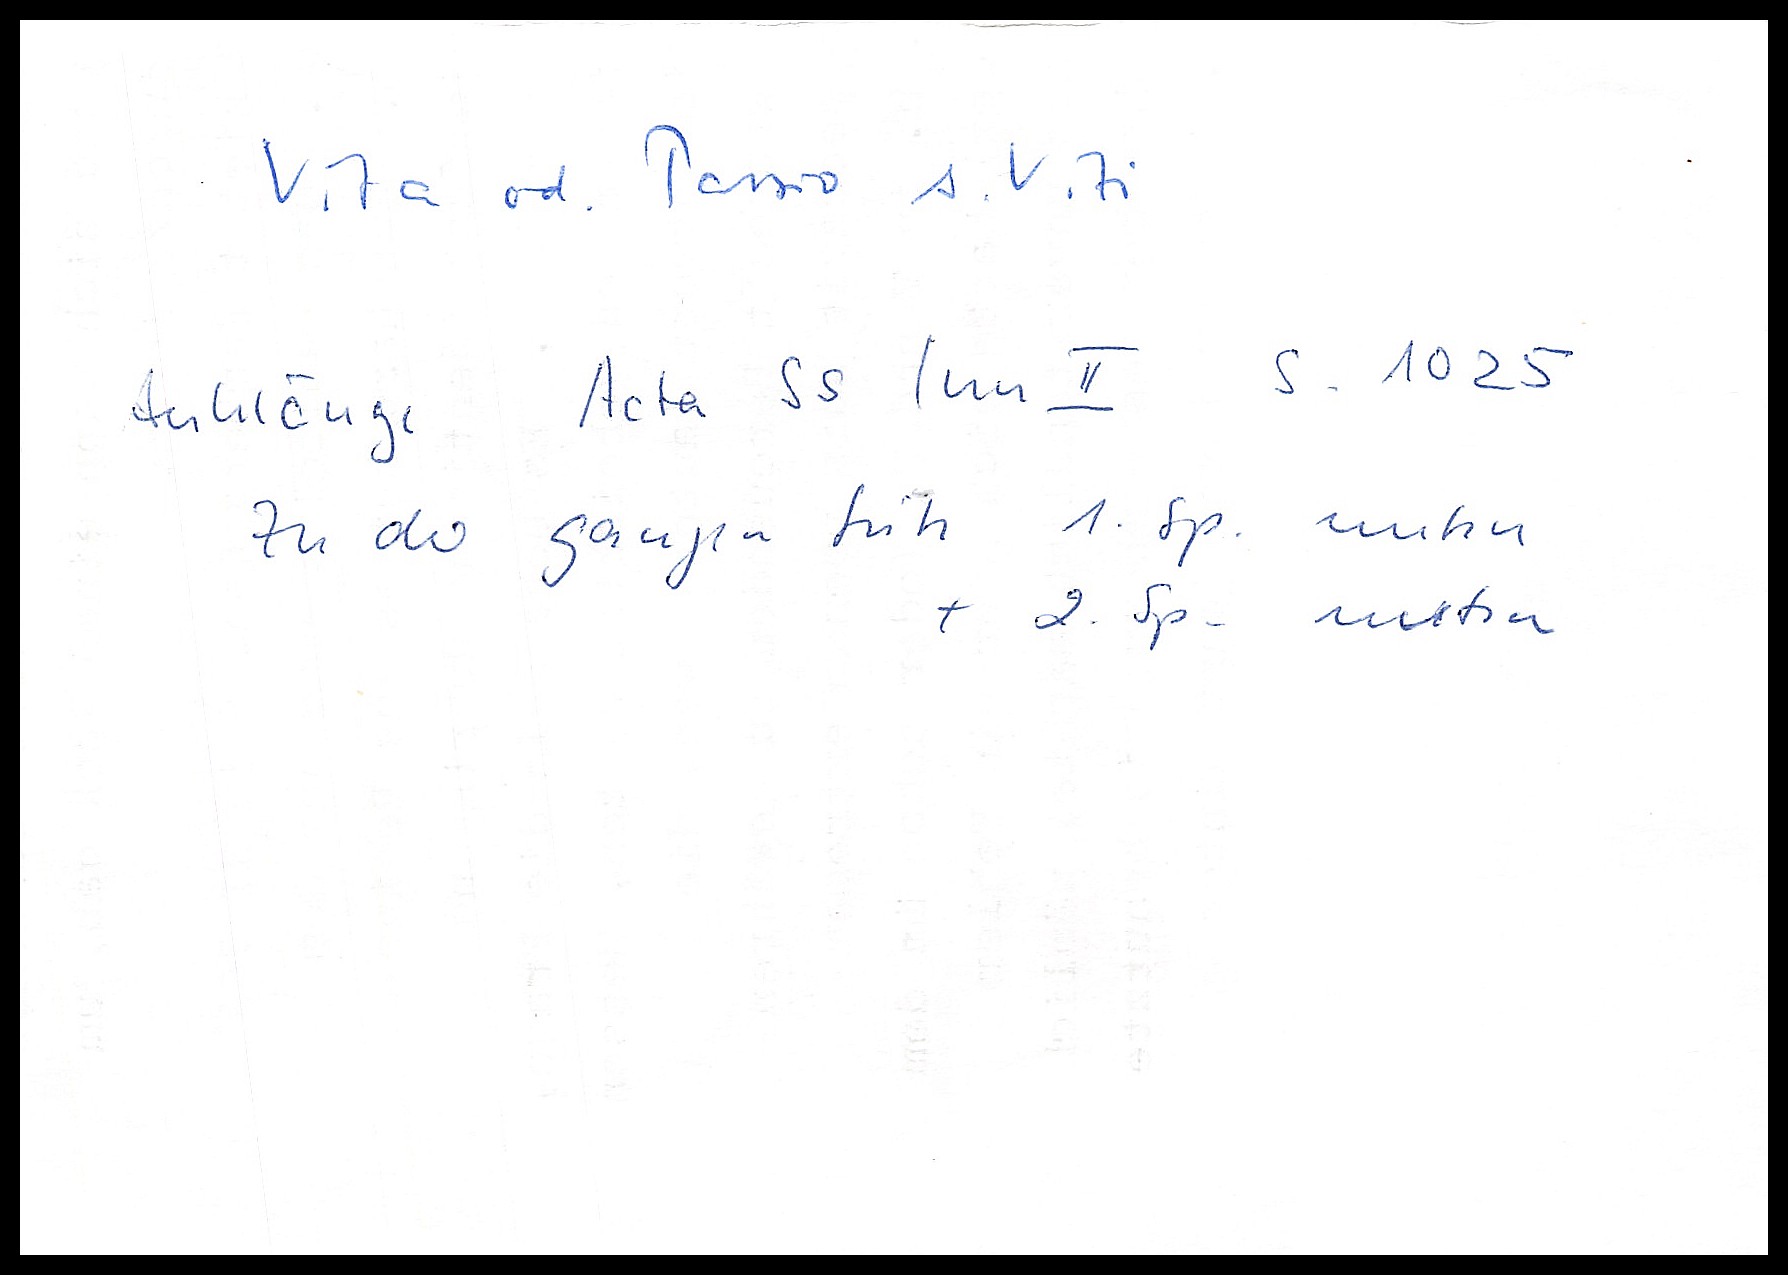 Vita od. Passio s. Viti
Anklänge Acta SS Iun II S. 1025
In der ganzen 1. Sp. unten
+ 2. Sp. unten